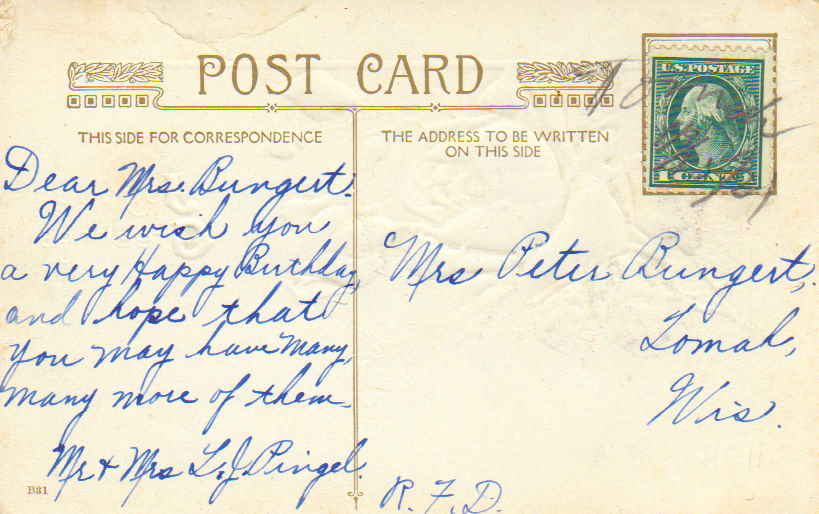 POST CARD
THIS SIDE FOR CORRESPONDENCE
THE ADDRESS TO BE WRITTEN
ON THIS SIDE
U.S. POSTAGE
1 CENT 1
Dear Mrs. Bungert.
We wish you
a very Happy Birthday,
and hope that
you may have Many,
many more of them.
Mr + Mrs L. J. Pingel.
Mrs Peter Bungert,
Tomah,
Wis.
R. F. D.
B31